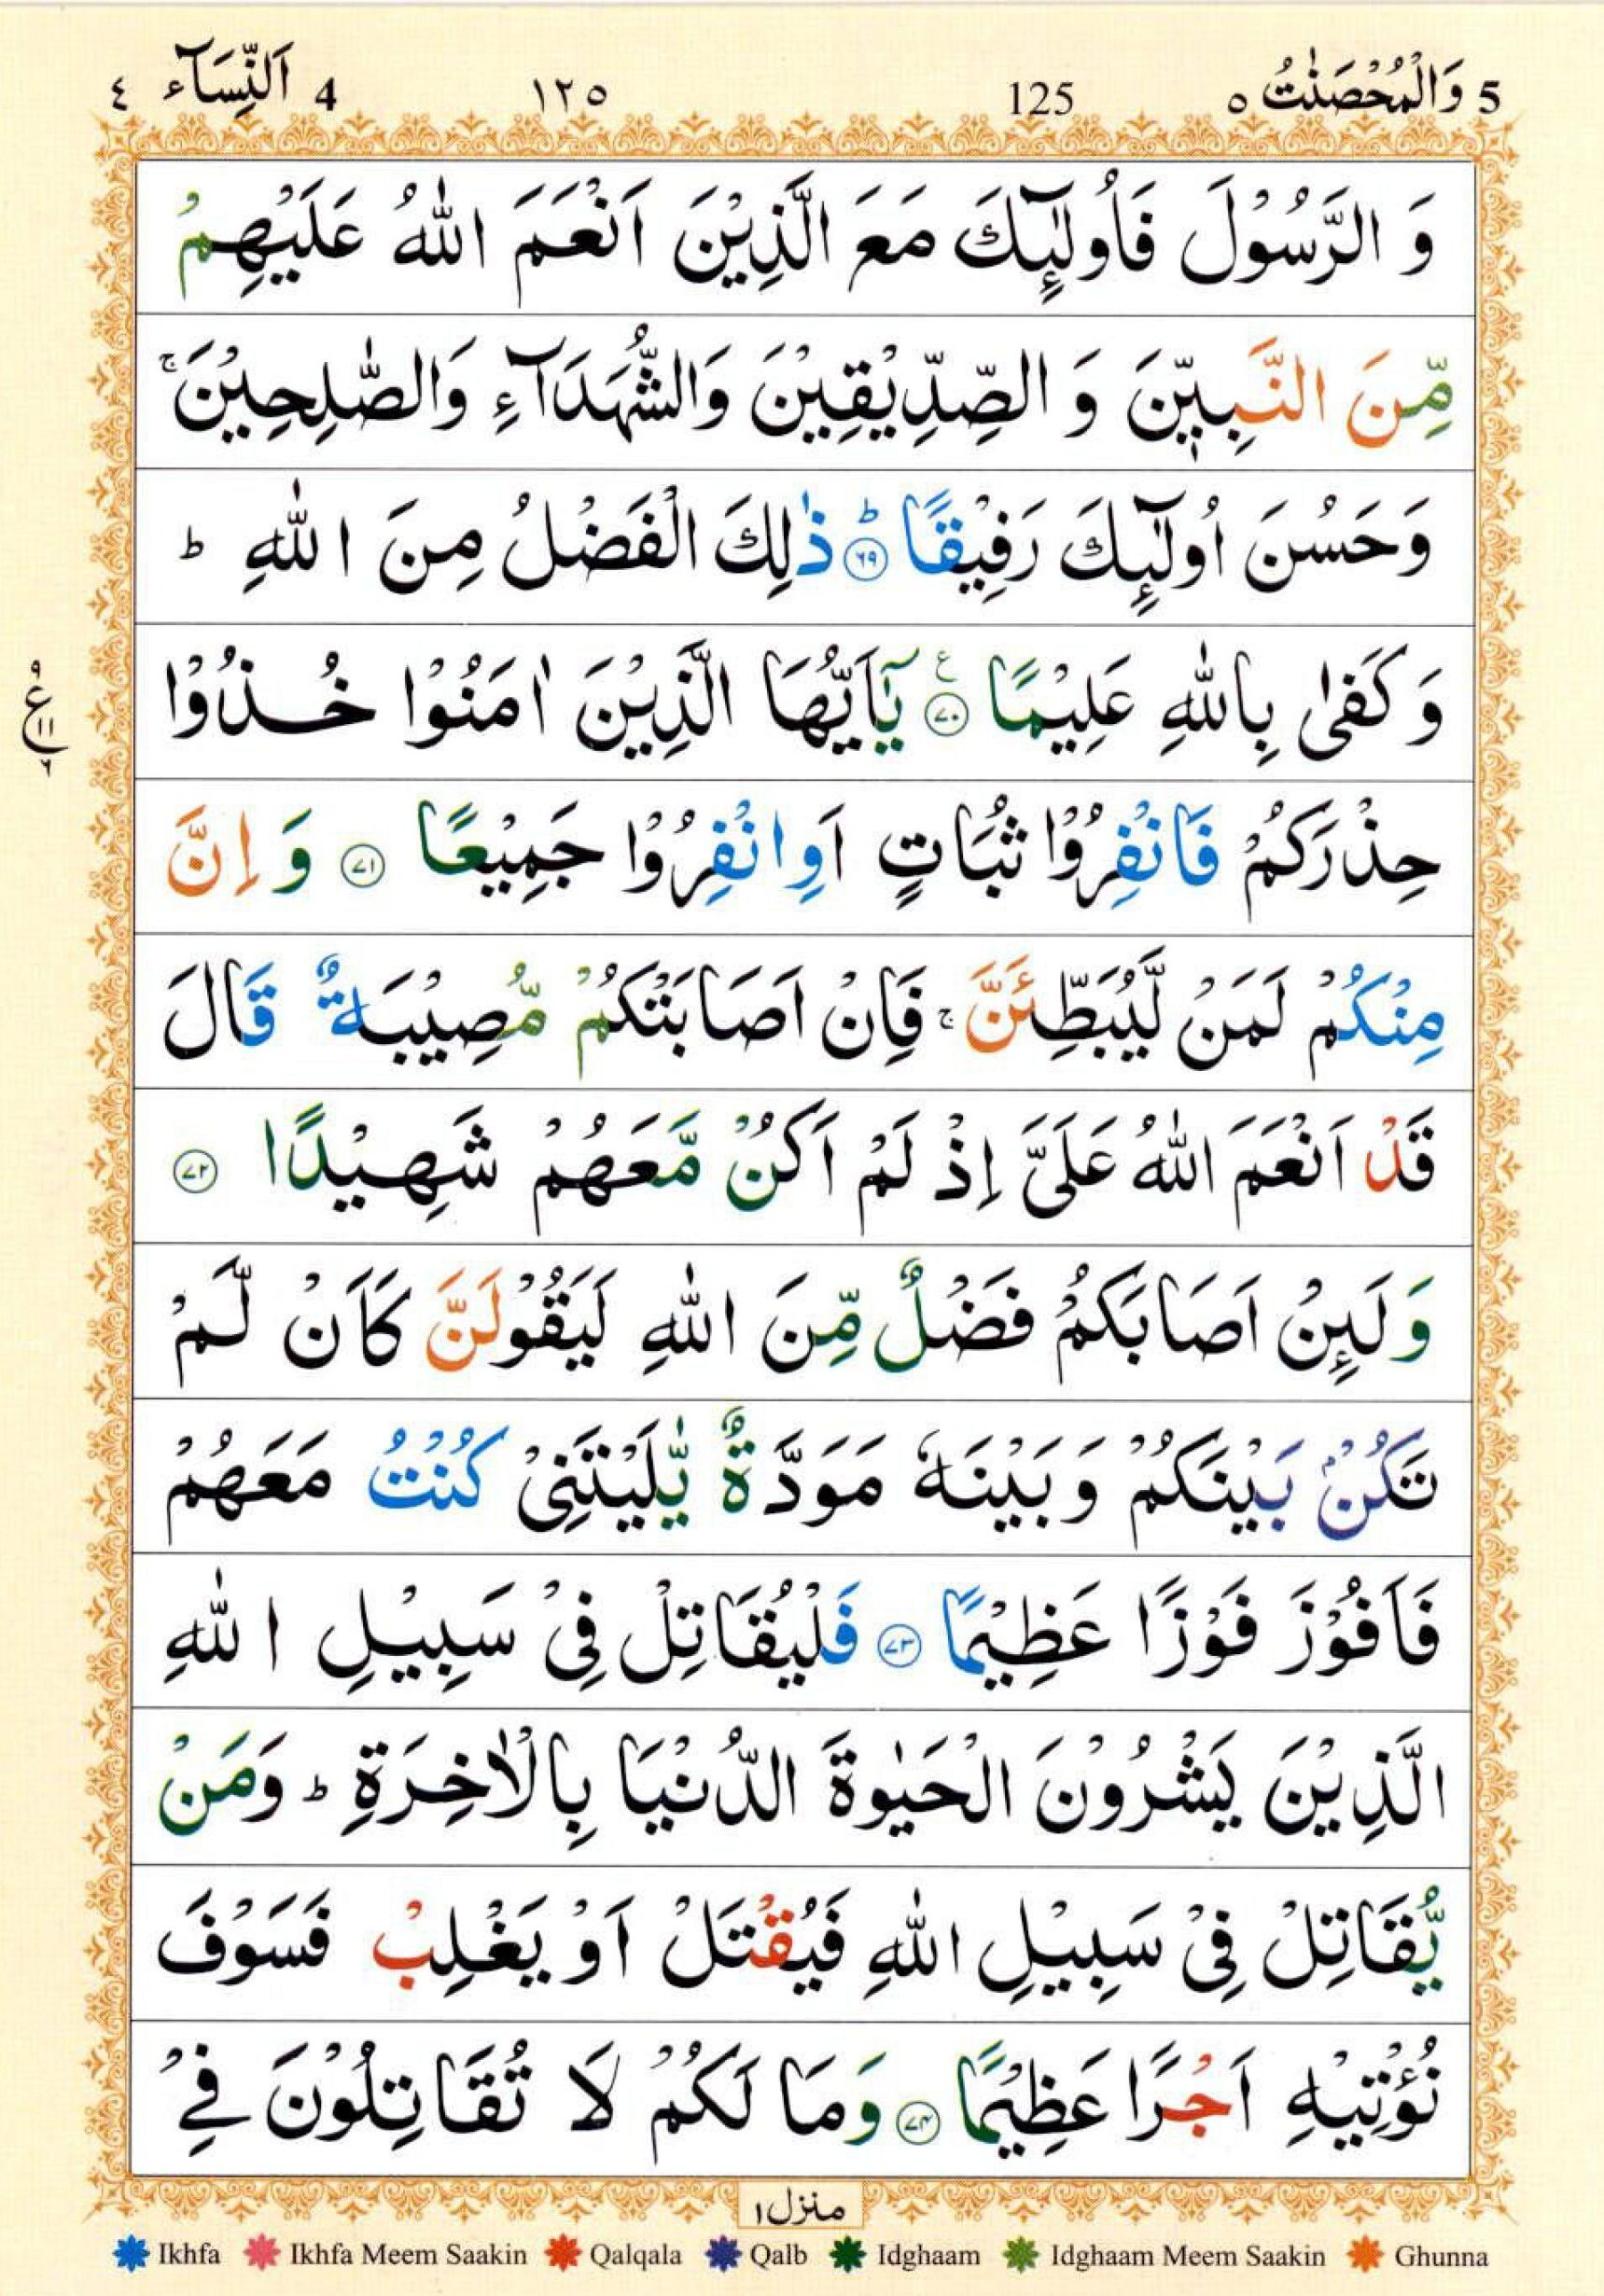 5 وَالْمُحْصَنٰتُ ٥ 125 ١٢٥ 4 اَلنِّسَآء ٤
وَ الرَّسُوْلَ فَاُولٰٓئِكَ مَعَ الَّذِيْنَ اَنْعَمَ اللّٰهُ عَلَيْهِمْ
مِّنَ النَّبِيّٖنَ وَ الصِّدِّيْقِيْنَ وَالشُّهَدَآءِ وَالصّٰلِحِيْنَ ۚ
وَحَسُنَ اُولٰٓئِكَ رَفِيْقًا ؕ ﴿٦٩﴾ ذٰلِكَ الْفَضْلُ مِنَ اللّٰهِ ؕ
وَكَفٰى بِاللّٰهِ عَلِيْمًا ﴿٧٠﴾ ع يٰۤاَيُّهَا الَّذِيْنَ اٰمَنُوْا خُذُوْا
ع ٩ ١١ ٦
حِذْرَكُمْ فَانْفِرُوْا ثُبَاتٍ اَوِ انْفِرُوْا جَمِيْعًا ﴿٧١﴾ وَ اِنَّ
مِنْكُمْ لَمَنْ لَّيُبَطِّئَنَّ ۚ فَاِنْ اَصَابَتْكُمْ مُّصِيْبَةٌ قَالَ
قَدْ اَنْعَمَ اللّٰهُ عَلَىَّ اِذْ لَمْ اَكُنْ مَّعَهُمْ شَهِيْدًا ﴿٧٢﴾
وَلَئِنْ اَصَابَكُمْ فَضْلٌ مِّنَ اللّٰهِ لَيَقُوْلَنَّ كَاَنْ لَّمْ
تَكُنْۢ بَيْنَكُمْ وَبَيْنَهٗ مَوَدَّةٌ يّٰلَيْتَنِىْ كُنْتُ مَعَهُمْ
فَاَفُوْزَ فَوْزًا عَظِيْمًا ﴿٧٣﴾ فَلْيُقَاتِلْ فِىْ سَبِيْلِ اللّٰهِ
الَّذِيْنَ يَشْرُوْنَ الْحَيٰوةَ الدُّنْيَا بِالْاٰخِرَةِ ؕ وَمَنْ
يُّقَاتِلْ فِىْ سَبِيْلِ اللّٰهِ فَيُقْتَلْ اَوْ يَغْلِبْ فَسَوْفَ
نُؤْتِيْهِ اَجْرًا عَظِيْمًا ﴿٧٤﴾ وَمَا لَكُمْ لَا تُقَاتِلُوْنَ فِىْ
منزل ١
Ikhfa Ikhfa Meem Saakin Qalqala Qalb Idghaam Idghaam Meem Saakin Ghunna